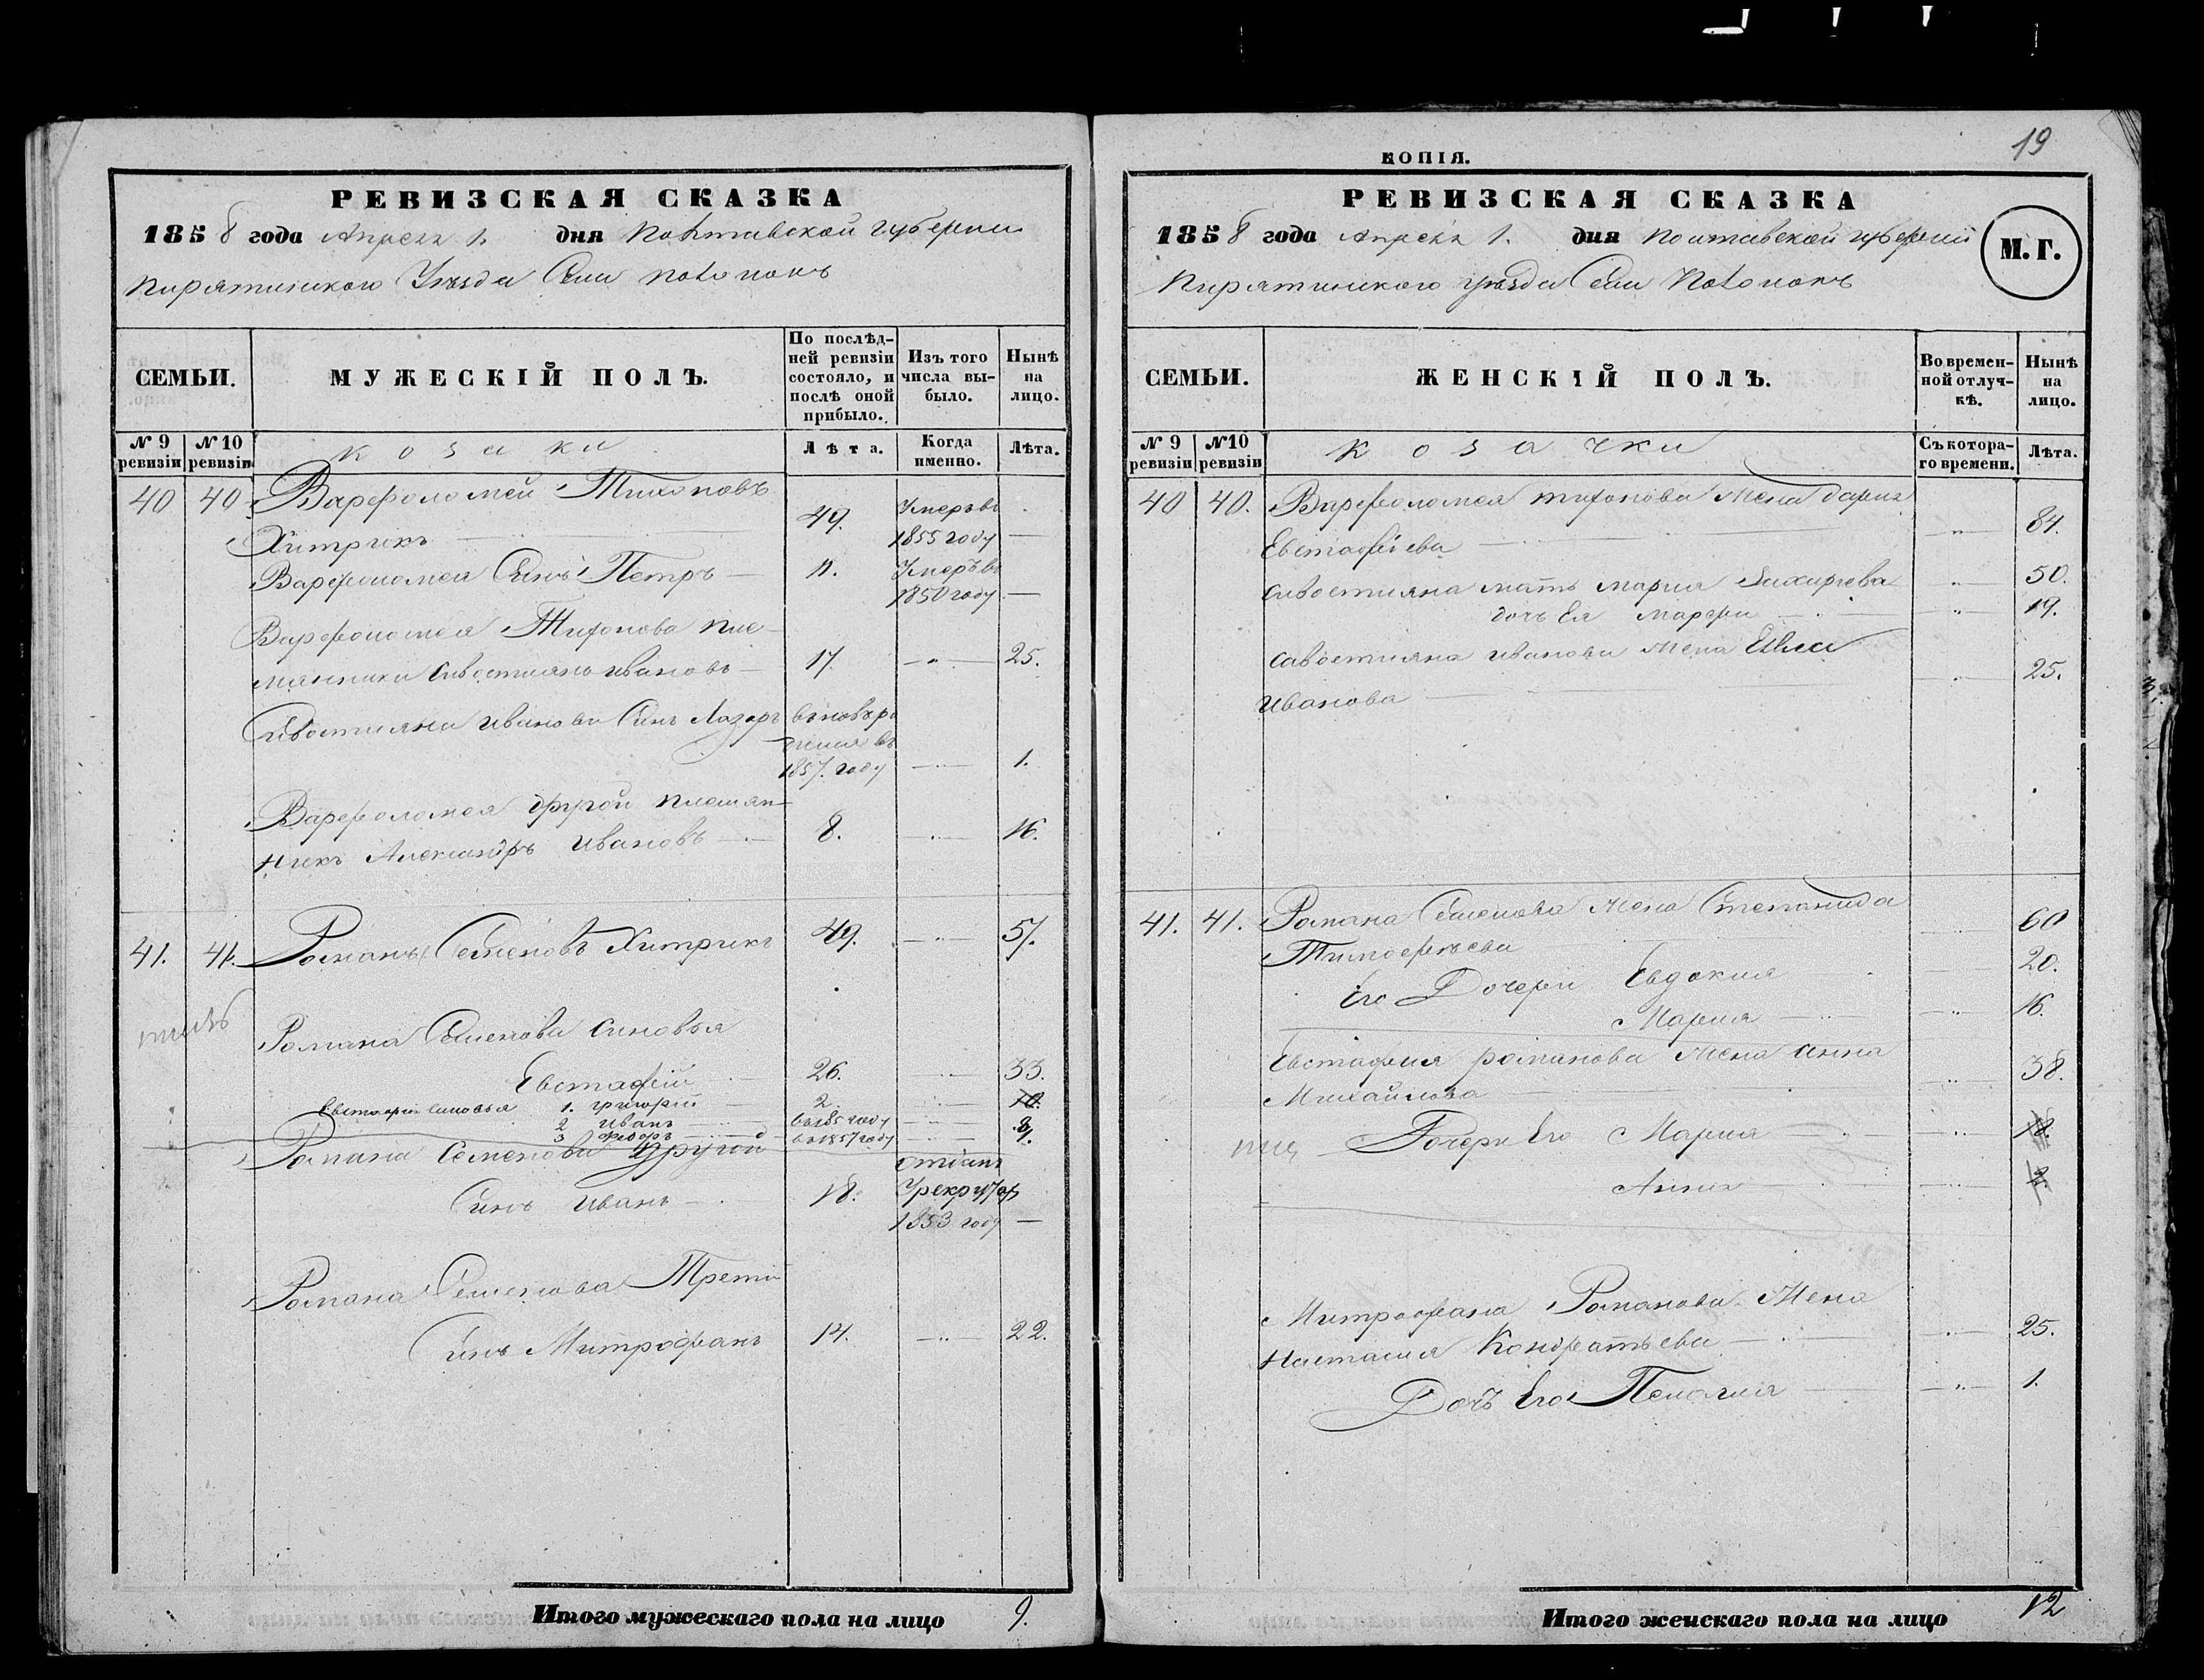 РЕВИЗСКАЯ СКАЗКА
1858 года Апреля 1. дня Полтавской губернии
Пирятинского Уезда Села Поло
СЕМЬИ.
МУЖЕСКІЙ ПОЛЪ.
По послѣд-
ней ревизіи
состояло, и
послѣ оной
прибыло.
Изъ того
числа вы-
было.
Нынѣ
на
лицо.
№ 9
ревизіи
№ 10
ревизіи
козаки
Лѣта.
Когда
именно.
Лѣта.
40 40 Варфоломей Тихоновъ
Хитрикъ 49. Умеръ въ
1855 году
Варфоломея Синъ Петръ 11. Умеръ въ
1850 году
Варфоломея Тихонова пле-
мянники Савостиянъ Ивановъ 17. 25.
Савостияна Иванова Синъ Лазаръ
въ
1857. году 1.
Варфоломея другой племян-
никъ Александръ Ивановъ 8. 16.
41. 41. Романъ Семеновъ Хитрикъ 49. 57.
Романа Семенова синовья
Евстафій 26. 33.
Евстафія синовья 1. григорій 2. 10.
2 Иванъ году
3 федоръ въ 1857 году 1.
Романа Семенова другой
Синъ Иванъ 18. отданъ
1853 году
Романа Семенова Трети
Синъ Митрофанъ 14. 22.
Итого мужескаго пола на лицо 9.
КОПІЯ.
19
РЕВИЗСКАЯ СКАЗКА
1858 года Апреля 1. дня Полтавской губерніи
М. Г.
Пирятинского уезда Села Поло
СЕМЬИ.
ЖЕНСКІЙ ПОЛЪ.
Во времен-
ной отлуч-
кѣ.
Нынѣ
на
лицо.
№ 9
ревизіи
№ 10
ревизіи
козачки
Съ котора-
го времени.
Лѣта.
40 40. Варфоломея Тихонова Жена Дария
Евстафіева
Савостияна мать Мария Захариева 50.
дочь Ея Марфа 19.
Савостияна Иванова Жена
Иванова 25.
41. 41. Романа Семенова Жена Степанида
Тимофеева 60
Его Дочери Евдокия 20.
Мария 16.
Евстафия романова Жена анна
Михайлова 38.
Дочери Его Мария
Анна
Митрофана Романова Жена
Настасия Кондратьева 25.
Дочь Его Пелагия 1.
Итого женскаго пола на лицо 12